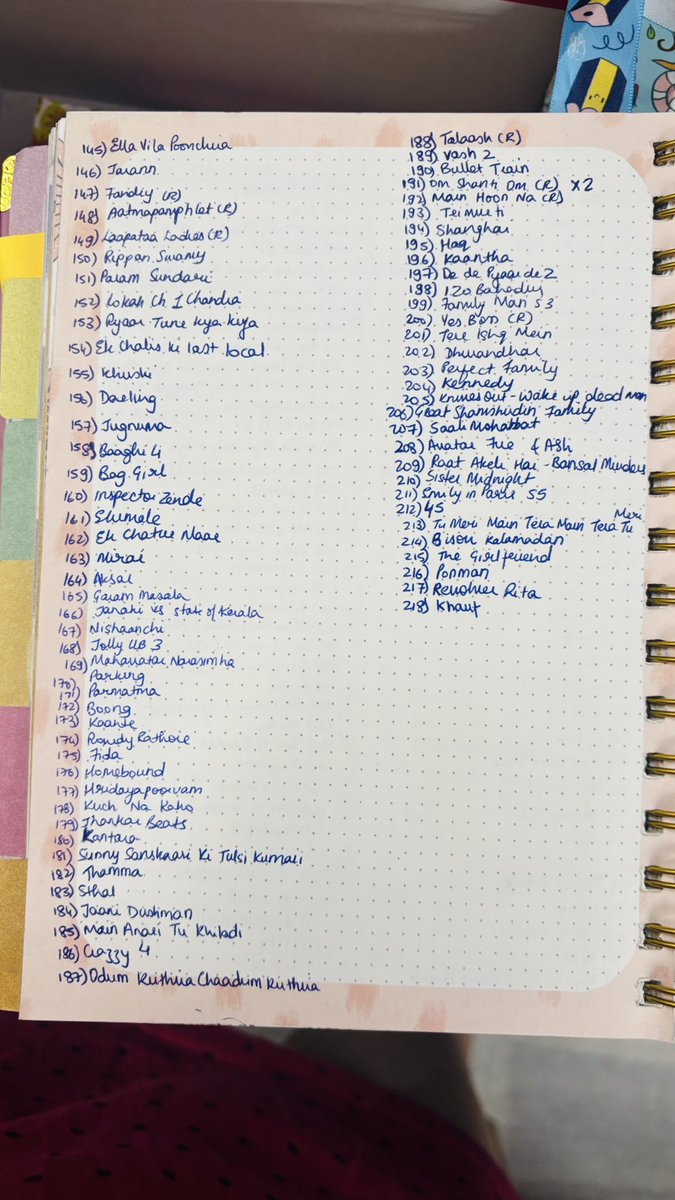 145) Ella Vila Poonchira
146) Jarann
147) Fandry (R)
148) Aatmapamphlet (R)
149) Laapataa Ladies (R)
150) Rippan Swamy
151) Param Sundari
152) Lokah Ch 1 Chandra
153) Pyaar Tune Kya Kiya
154) Ek Chalis ki last local
155) Khushi
156) Darling
157) Jugnuma
158) Baaghi 4
159) Bag Girl
160) Inspector Zende
161) Shimale
162) Ek Chatur Naar
163) Mirai
164) Aksar
165) Garam Masala
166) Janaki vs state of Kerala
167) Nishaanchi
168) Jolly LLB 3
169) Mahavatar Narasimha
170) Parking
171) Parmatma
172) Boong
173) Kaante
174) Rowdy Rathore
175) Fida
176) Homebound
177) Hridayapoorvam
178) Kuch Na Kaho
179) Jhankar Beats
180) Kantara
181) Sunny Sanskaari Ki Tulsi Kumari
182) Thamma
183) Sthal
184) Jaani Dushman
185) Main Anari Tu Khiladi
186) Crazzy 4
187) Odum Kuthira Chaadum Kuthira
188) Talaash (R)
189) Vash 2
190) Bullet Train
191) Om Shanti Om (R) x2
192) Main Hoon Na (R)
193) Teimurti
194) Shanghai
195) Haq
196) Kaantha
197) De de Pyaar de 2
198) 120 Bahadur
199) Family Man S3
200) Yes Boss (R)
201) Tere Ishq Mein
202) Dhurandhar
203) Perfect Family
204) Kennedy
205) Knives Out - Wake up dead man
206) Great Shamshudin Family
207) Saali Mohabbat
208) Avatar Fire & Ash
209) Raat Akeli Hai - Bansal Murders
210) Sister Midnight
211) Emily in Paris S5
212) 45
213) Tu Meri Main Tera Main Tera Tu Meri
214) Bison Kalamadan
215) The Girlfriend
216) Ponman
217) Revolver Rita
218) Khauf